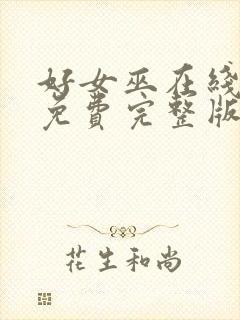 好女巫在线
免费完整版
花生和尚